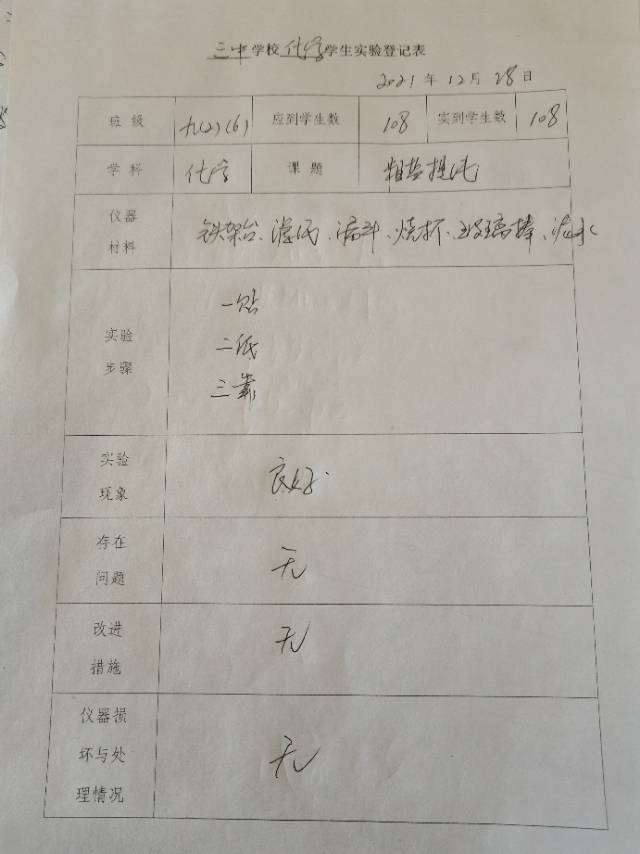 三中学校化学学生实验登记表
2021年12月28日
班级 九(2)(6) 应到学生数 108 实到学生数 108
学科 化学 课题 粗盐提纯
仪器
材料
铁架台、滤纸、漏斗、烧杯、玻璃棒、泥水
实验
步骤
一贴
二低
三靠
实验
现象
良好.
存在
问题
无
改进
措施
无
仪器损
坏与处
理情况
无